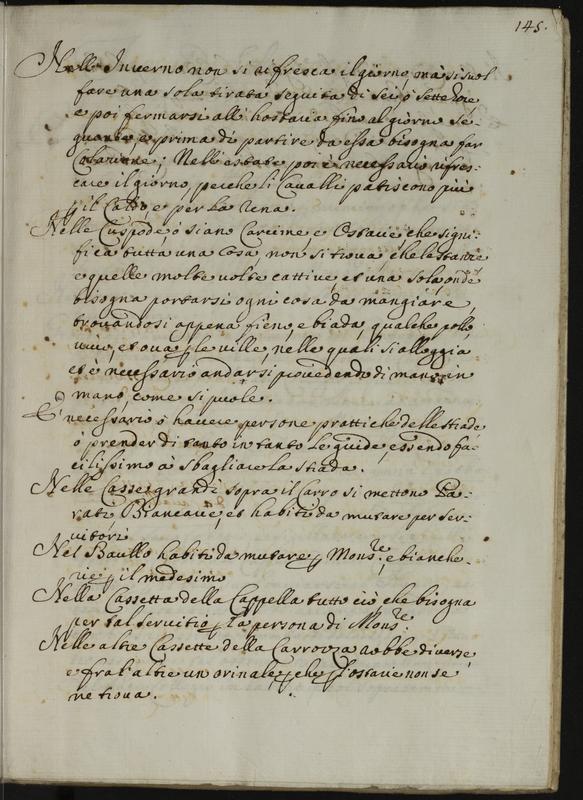 145.
Nell' Inverno non si rifresca il giorno, mà si suol
fare una sola tirata seguita di sei, ò sette hore
e poi fermarsi all' hostaria fino al giorno se-
guente, e prima di partire da essa bisogna far
Colatione; Nell'estate poi è necessario rifres-
care il giorno, perche li Cavalli patiscono più
p il Caldo, e per la rena.
Nelle Cuspode, ò siano Carcime, e Ostarie, che signi-
fica tutta una Cosa, non si trova, che le stanze
e quelle molte volte cattive, et una sola, onde
bisogna portarsi ogni cosa da mangiare,
trovandosi appena fieno, e biada, qualche pollo
vivo, et ova p le ville, nelle quali si alloggia
et è necessario andarsi provedendo di mano in
mano, come si puole.
È necessario ò havere persone prattiche delle strade
ò prender di tanto in tanto le guide, essendo fa-
cilissimo à sbagliare la strada.
Nelle Casse grandi sopra il Carro si mettono Pa-
rati Biancarie, et habiti da mutare per ser-
vitori
Nel Baullo habiti da mutare p Mons.re, e bianche-
rie p il medesimo
Nella Cassetta della Cappella tutto ciò, che bisogna
per tal servitio p la persona di Mons.re
Nelle altre Cassette della Carrozza robbe diverse,
e fra l'altre un orinale, che p l'ostarie non se
ne trova.